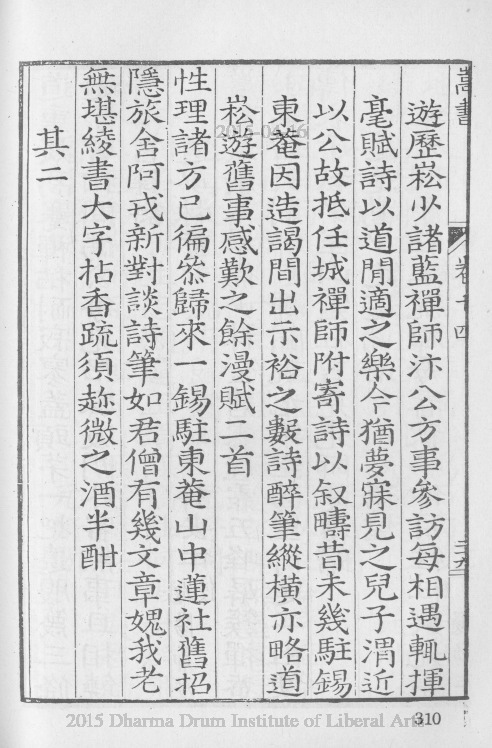 嵩書
卷十四
三九
遊歷崧少諸藍禪師汴公方事參訪每相遇輒揮
毫賦詩以道閒適之樂今猶夢寐見之兒子渭近
以公故抵任城禪師附寄詩以叙疇昔未幾駐錫
東菴因造謁間出示裕之數詩醉筆縱橫亦略道
崧遊舊事感歎之餘漫賦二首
性理諸方已徧叅歸來一錫駐東菴山中蓮社舊招
隱旅舍阿戎新對談詩筆如君僧有幾文章媿我老
無堪綾書大字枯杳疏須趂微之酒半酣
其二
2015-06-16
2015 Dharma Drum Institute of Liberal Arts
310